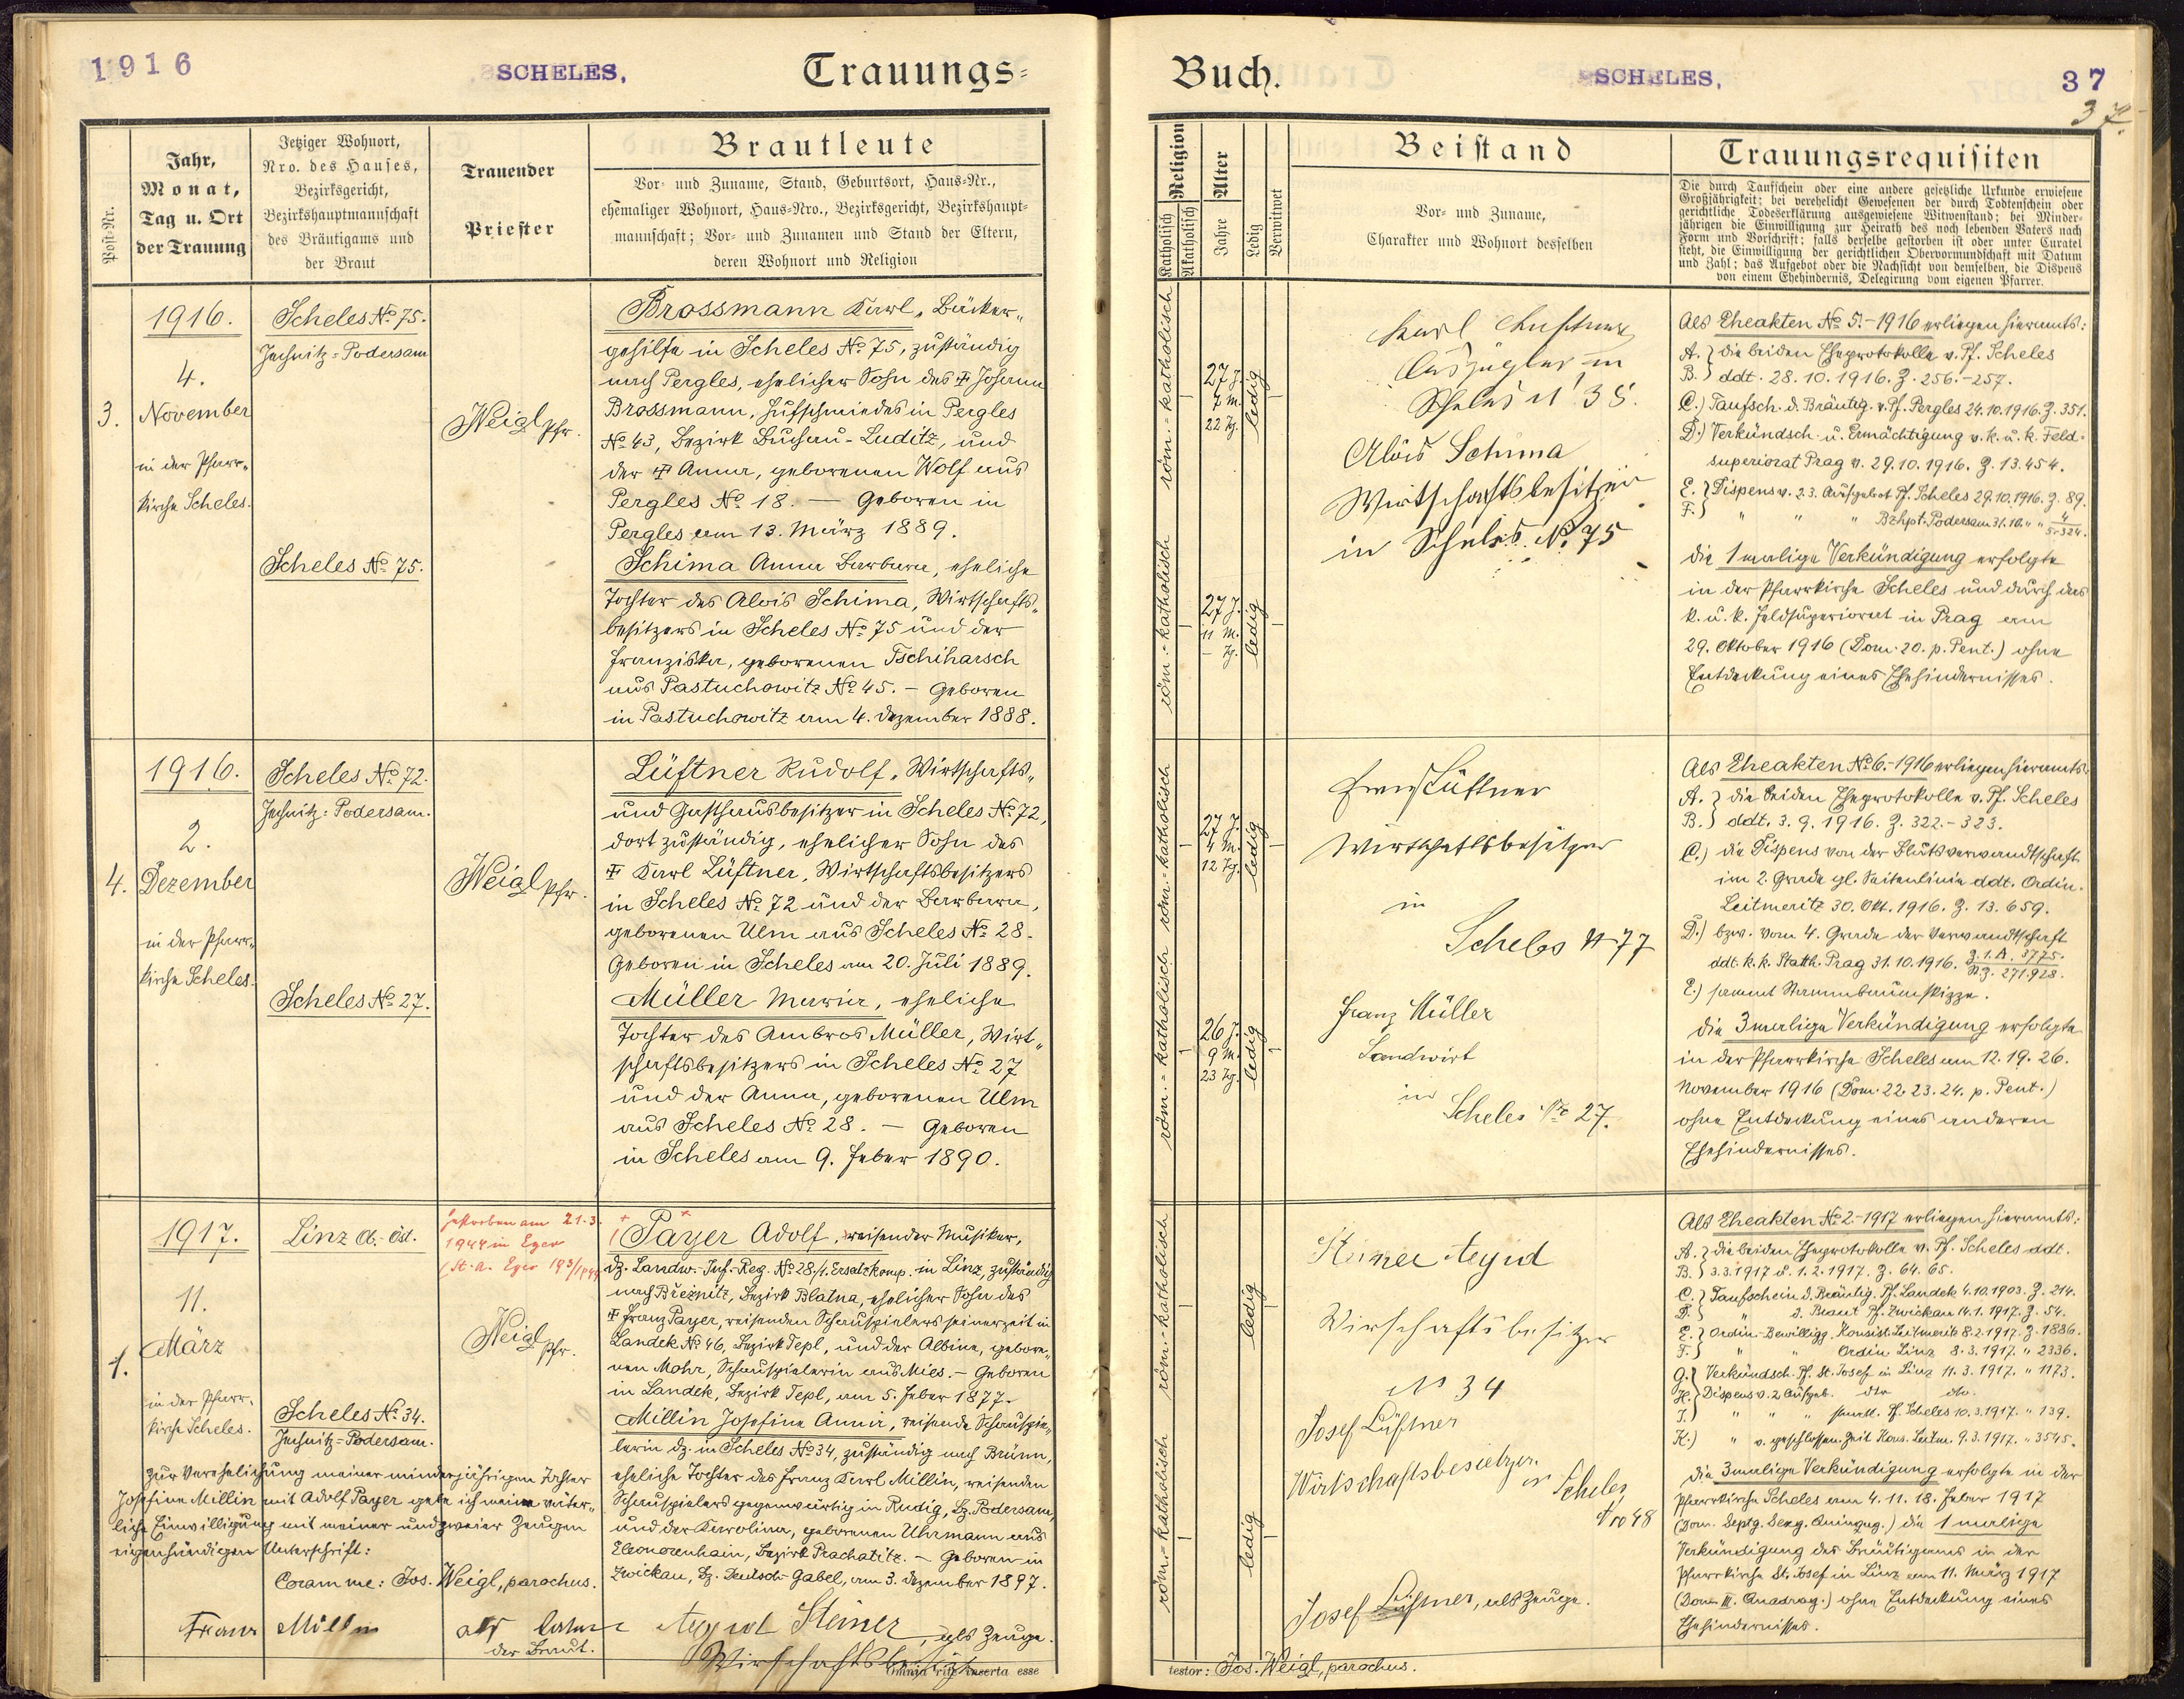 1916
SCHELES,
Trauungs=
Post-Nr.
Jahr,
Monat,
Tag u. Ort
der Trauung
Jetziger Wohnort,
Nro. des Hauses,
Bezirksgericht,
Bezirkshauptmannschaft
des Bräutigams und
der Braut
Trauender
Priester
Brautleute
Vor- und Zuname, Stand, Geburtsort, Haus-Nr.,
ehemaliger Wohnort, Haus-Nro., Bezirksgericht, Bezirkshaupt-
mannschaft; Vor- und Zunamen und Stand der Eltern,
deren Wohnort und Religion
3.
1916.
4.
November
in der Pfarr-
kirche Scheles.
Scheles No 75.
Jechnitz=Podersam
Scheles No 75.
Weigl Pfr.
Brossmann Karl, Bäcker-
gehilfe in Scheles No 75, zuständig
nach Pergles, ehelicher Sohn des Johann
Brossmann, Hufschmiedes in Pergles
No 43, Bezirk Buchau-Luditz, und
der Anna, geborenen Wolf aus
Pergles No 18. — Geboren in
Pergles am 13. März 1889.
Schima Anna Barbara, eheliche
Tochter des Alois Schima, Wirtschafts-
besitzers in Scheles No 75 und der
Franziska, geborenen Tschiharsch
aus Pastuchowitz No 45. – Geboren
in Pastuchowitz am 4. Dezember 1888.
4.
1916.
2.
Dezember
in der Pfarr-
kirche Scheles.
Scheles No 72.
Jechnitz=Podersam.
Scheles No 27.
Weigl Pfr.
Lüftner Rudolf, Wirtschafts-
und Gasthausbesitzer in Scheles No 72,
dort zuständig, ehelicher Sohn des
Karl Lüftner, Wirtschaftsbesitzers
in Scheles No 72 und der Barbara,
geborenen Ulm aus Scheles No 28.
Geboren in Scheles am 20. Juli 1889.
Müller Maria, eheliche
Tochter des Ambros Müller, Wirt-
schaftsbesitzers in Scheles No 27
und der Anna, geborenen Ulm
aus Scheles No 28. — Geboren
in Scheles am 9. Feber 1890.
1.
1917.
11.
März
in der Pfarr-
kirche Scheles.
Linz O.-Öst.
Scheles No 34.
Jechnitz=Podersam.
gestorben am 21.3.
1944 in Eger
Weigl Pfr.
Payer Adolf, reisender Musiker,
dz. Landw.-Inf.-Reg. No 28/1. Ersatzkomp. in Linz, zuständig
nach Březnitz, Bezirk Blatna, ehelicher Sohn des
Franz Payer, reisenden Schauspielers seinerzeit in
Landek No 46, Bezirk Tepl, und der Albine, gebore-
nen Mohr, Schauspielerin aus Mies. – Geboren
in Landek, Bezirk Tepl, am 5. Feber 1877.
Millin Josefine Anna, reisende Schauspie-
lerin dz. in Scheles No 34, zuständig nach Brünn,
eheliche Tochter des Franz Karl Millin, reisenden
Schauspielers gegenwärtig in Rudig, Bz. Podersam,
und der Karolina, geborenen Uhrmann aus
Eleonorenhain, Bezirk Prachatitz. – Geboren in
Zwickau, Bz. Deutsch-Gabel, am 3. Dezember 1897.
Zur Verehelichung meiner minderjährigen Tochter
Josefine Millin mit Adolf Payer gebe ich meine väter-
liche Einwilligung mit meiner und zweier Zeugen
eigenhändigen Unterschrift:
Coram me: Jos. Weigl, parochus.
Franz Millin als Vater
der Braut.
Aegid Steiner, als Zeuge.
Wirschaftsbesitzer
omnia rite inserta esse
Buch.
SCHELES,
37
37.
Religion
Katholisch
Akatholisch
Alter
Jahre
Ledig
Verwitwet
Beistand
Vor- und Zuname,
Charakter und Wohnort desselben
Trauungsrequisiten
Die durch Taufschein oder eine andere gesetzliche Urkunde erwiesene
Großjährigkeit; bei verehelicht Gewesenen der durch Todtenschein oder
gerichtliche Todeserklärung ausgewiesene Witwenstand; bei Minder-
jährigen die Einwilligung zur Heirath des noch lebenden Vaters nach
Form und Vorschrift; falls derselbe gestorben ist oder unter Curatel
steht, die Einwilligung der gerichtlichen Obervormundschaft mit Datum
und Zahl; das Aufgebot oder die Nachsicht von demselben, die Dispens
von einem Ehehindernis, Delegirung vom eigenen Pfarrer.
röm.-katholisch
27 J.
7 M.
22 Tg.
ledig
röm.-katholisch
27 J.
11 M.
– Tg.
ledig
Karl
Auszügler in
Scheles N 38.
Alois Schima
Wirtschaftsbesitzer
in Scheles No 75
Als Eheakten No 5.-1916 erliegen hieramts:
A. } die beiden Eheprotokolle v. Pf. Scheles
B. } ddt. 28.10.1916. Z. 256.-257.
C.) Taufsch. d. Bräutig. v. Pf. Pergles 24.10.1916. Z. 351.
D.) Verkündsch. u. Ermächtigung v. k. u. k. Feld-
superiorat Prag v. 29.10.1916. Z. 13.454.
E. } Dispens v. 2.3. Aufgebot Pf. Scheles 29.10.1916. Z. 89.
F. } " " " Bzhpt. Podersam 31.10. " "
die 1malige Verkündigung erfolgte
in der Pfarrkirche Scheles und durch das
k. u. k. Feldsuperiorat in Prag am
29. Oktober 1916 (Dom. 20. p. Pent.) ohne
Entdeckung eines Ehehindernisses.
röm.-katholisch
27 J.
4 M.
12 Tg.
ledig
röm.-katholisch
26 J.
9 M.
23 Tg.
ledig
Lüftner
Wirtschaftsbesitzer
in
Scheles N 77
Franz Müller
Landwirt
in
Scheles No 27.
Als Eheakten No 6.-1916 erliegen hieramts:
A. } die beiden Eheprotokolle v. Pf. Scheles
B. } ddt. 3.9.1916. Z. 322.-323.
C.) die Dispens von der Blutsverwandtschaft
im 2. Grade gl. Seitenlinie ddt. Ordin.
Leitmeritz 30. Okt. 1916. Z. 13.659.
D.) bzw. vom 4. Grade der Verwandtschaft
ddt. k. k. Statth. Prag 31.10.1916. Z. 1.A. 3775.
N.Z. 271.928.
E.) sammt Stammbaumskizze.
die 3malige Verkündigung erfolgte
in der Pfarrkirche Scheles am 12. 19. 26.
November 1916 (Dom. 22. 23. 24. p. Pent.)
ohne Entdeckung eines anderen
Ehehindernisses.
röm.-katholisch
ledig
röm.-katholisch
ledig
Steiner Aegid
Wirschaftsbesitzer
No 34
Josef Lüftner
Wirtschaftsbesietzer
in Scheles
Nro 48
Josef Lüftner, als Zeuge.
Als Eheakten No 2.-1917 erliegen hieramts:
A. } die beiden Eheprotokolle v. Pf. Scheles ddt.
B. } 3.3.1917 u. 1.2.1917. Z. 64. 65.
C. } Taufschein d. Bräutig. Pf. Landek 4.10.1903. Z. 214.
D. } " d. Braut Pf. Zwickau 14.1.1917. Z. 54.
E. } Ordin.-Bewilligg. Konsist. Leitmeritz 8.2.1917. Z. 1886.
F. } " " Ordin Linz 8.3.1917. " 2336.
G. } Verkündsch. Pf. St. Josef in Linz 11.3.1917. " 1173.
H. } Dispens v. 2 Aufgeb. dto dto.
J.) " " " Pf. Scheles 10.3.1917. " 139.
K.) " v. geschlossen. Zeit Kons. Leitm. 9.3.1917. " 3545.
die 3malige Verkündigung erfolgte in der
Pfarrkirche Scheles am 4. 11. 18. Feber 1917
(Dom. Septg. Sexg. Quinqug.) die 1malige
Verkündigung des Bräutigams in der
Pfarrkirche St. Josef in Linz am 11. März 1917
(Dom. III. Quadrag.) ohne Entdeckung eines
Ehehindernisses.
testor: Jos. Weigl, parochus.